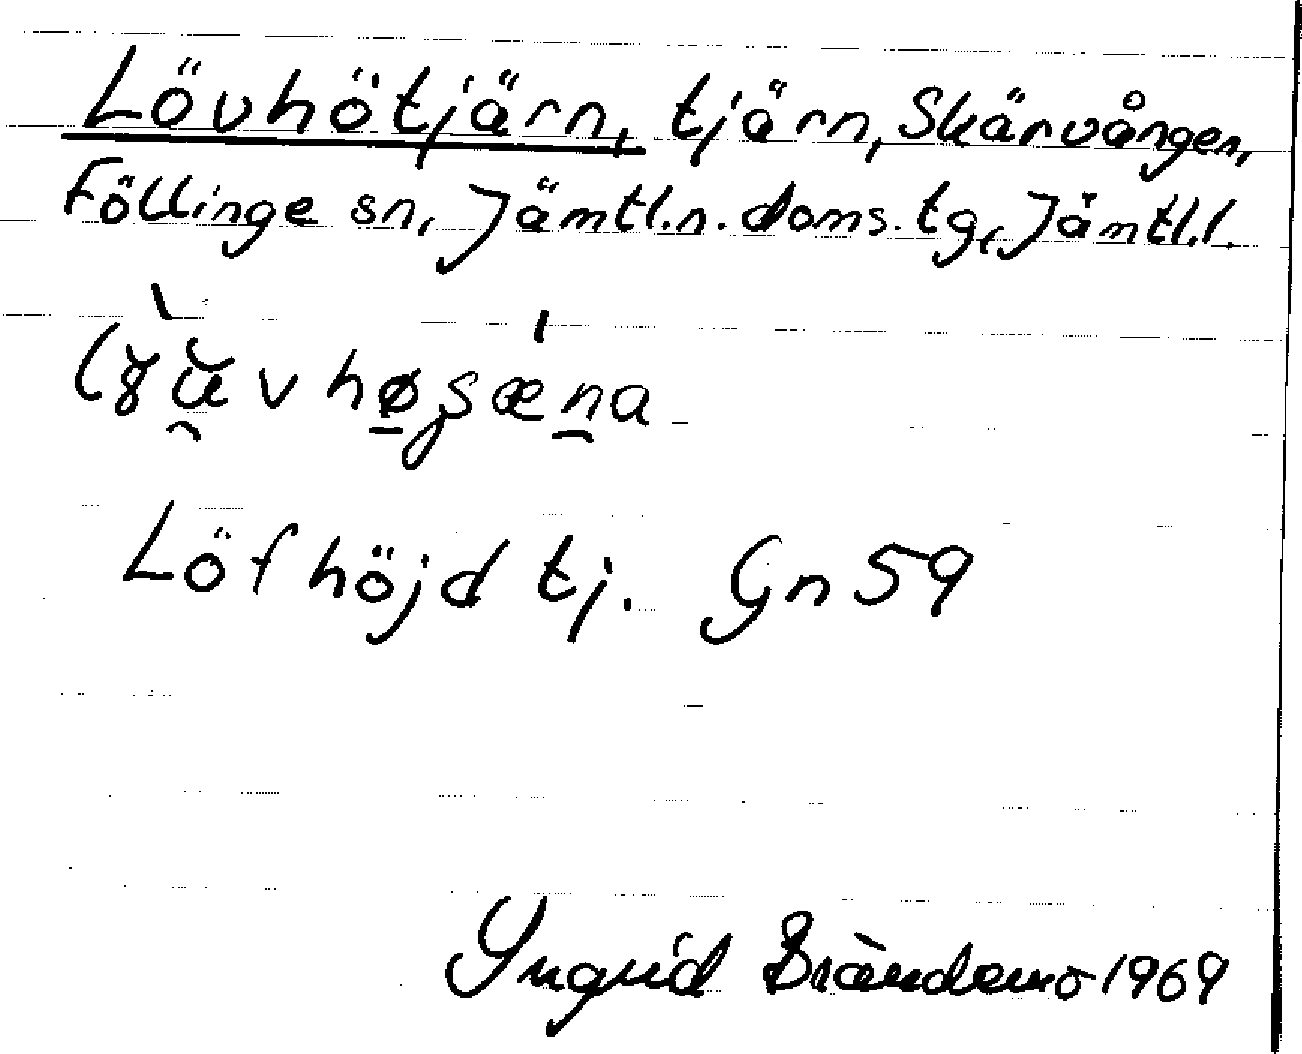 Lövhötjärn, tjärn, Skärvången,
Föllinge sn, Jämtl.n.doms.tg, Jämtl.l.
Löfhöjd tj. Gn 59
Ingrid Brändemo 1969